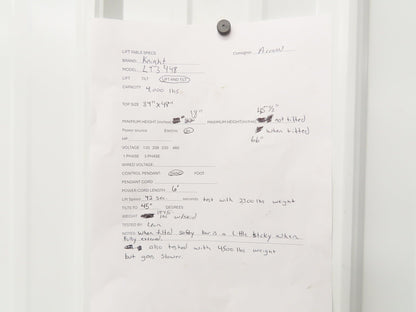 LIFT TABLE SPECS
Consignor Accord
BRAND: Knight
MODEL: LT3 448
LIFT TILT LIFT AND TILT
CAPACITY 4,000 lbs.
TOP SIZE 34" x 48"
MINIMUM HEIGHT (Inches) 18" MAXIMUM HEIGHT (Inches) 45 1/2" not tilted
Power source Electric Air when tilted
HP 66"
VOLTAGE 120 208 230 460
1 PHASE 3 PHASE
WIRED VOLTAGE
CONTROL PENDANT HAND FOOT
PENDANT CORD
POWER CORD LENGTH 6'
Lift Speed 42 sec seconds test with 2300 lbs weight
TILTS TO 45° DEGREES
WEIGHT 1975 lbs w/skid
TESTED BY:
NOTES: When tilted safety bar is a little sticky when
fully extened.
also tested with 4500 lbs weight
but goes slower